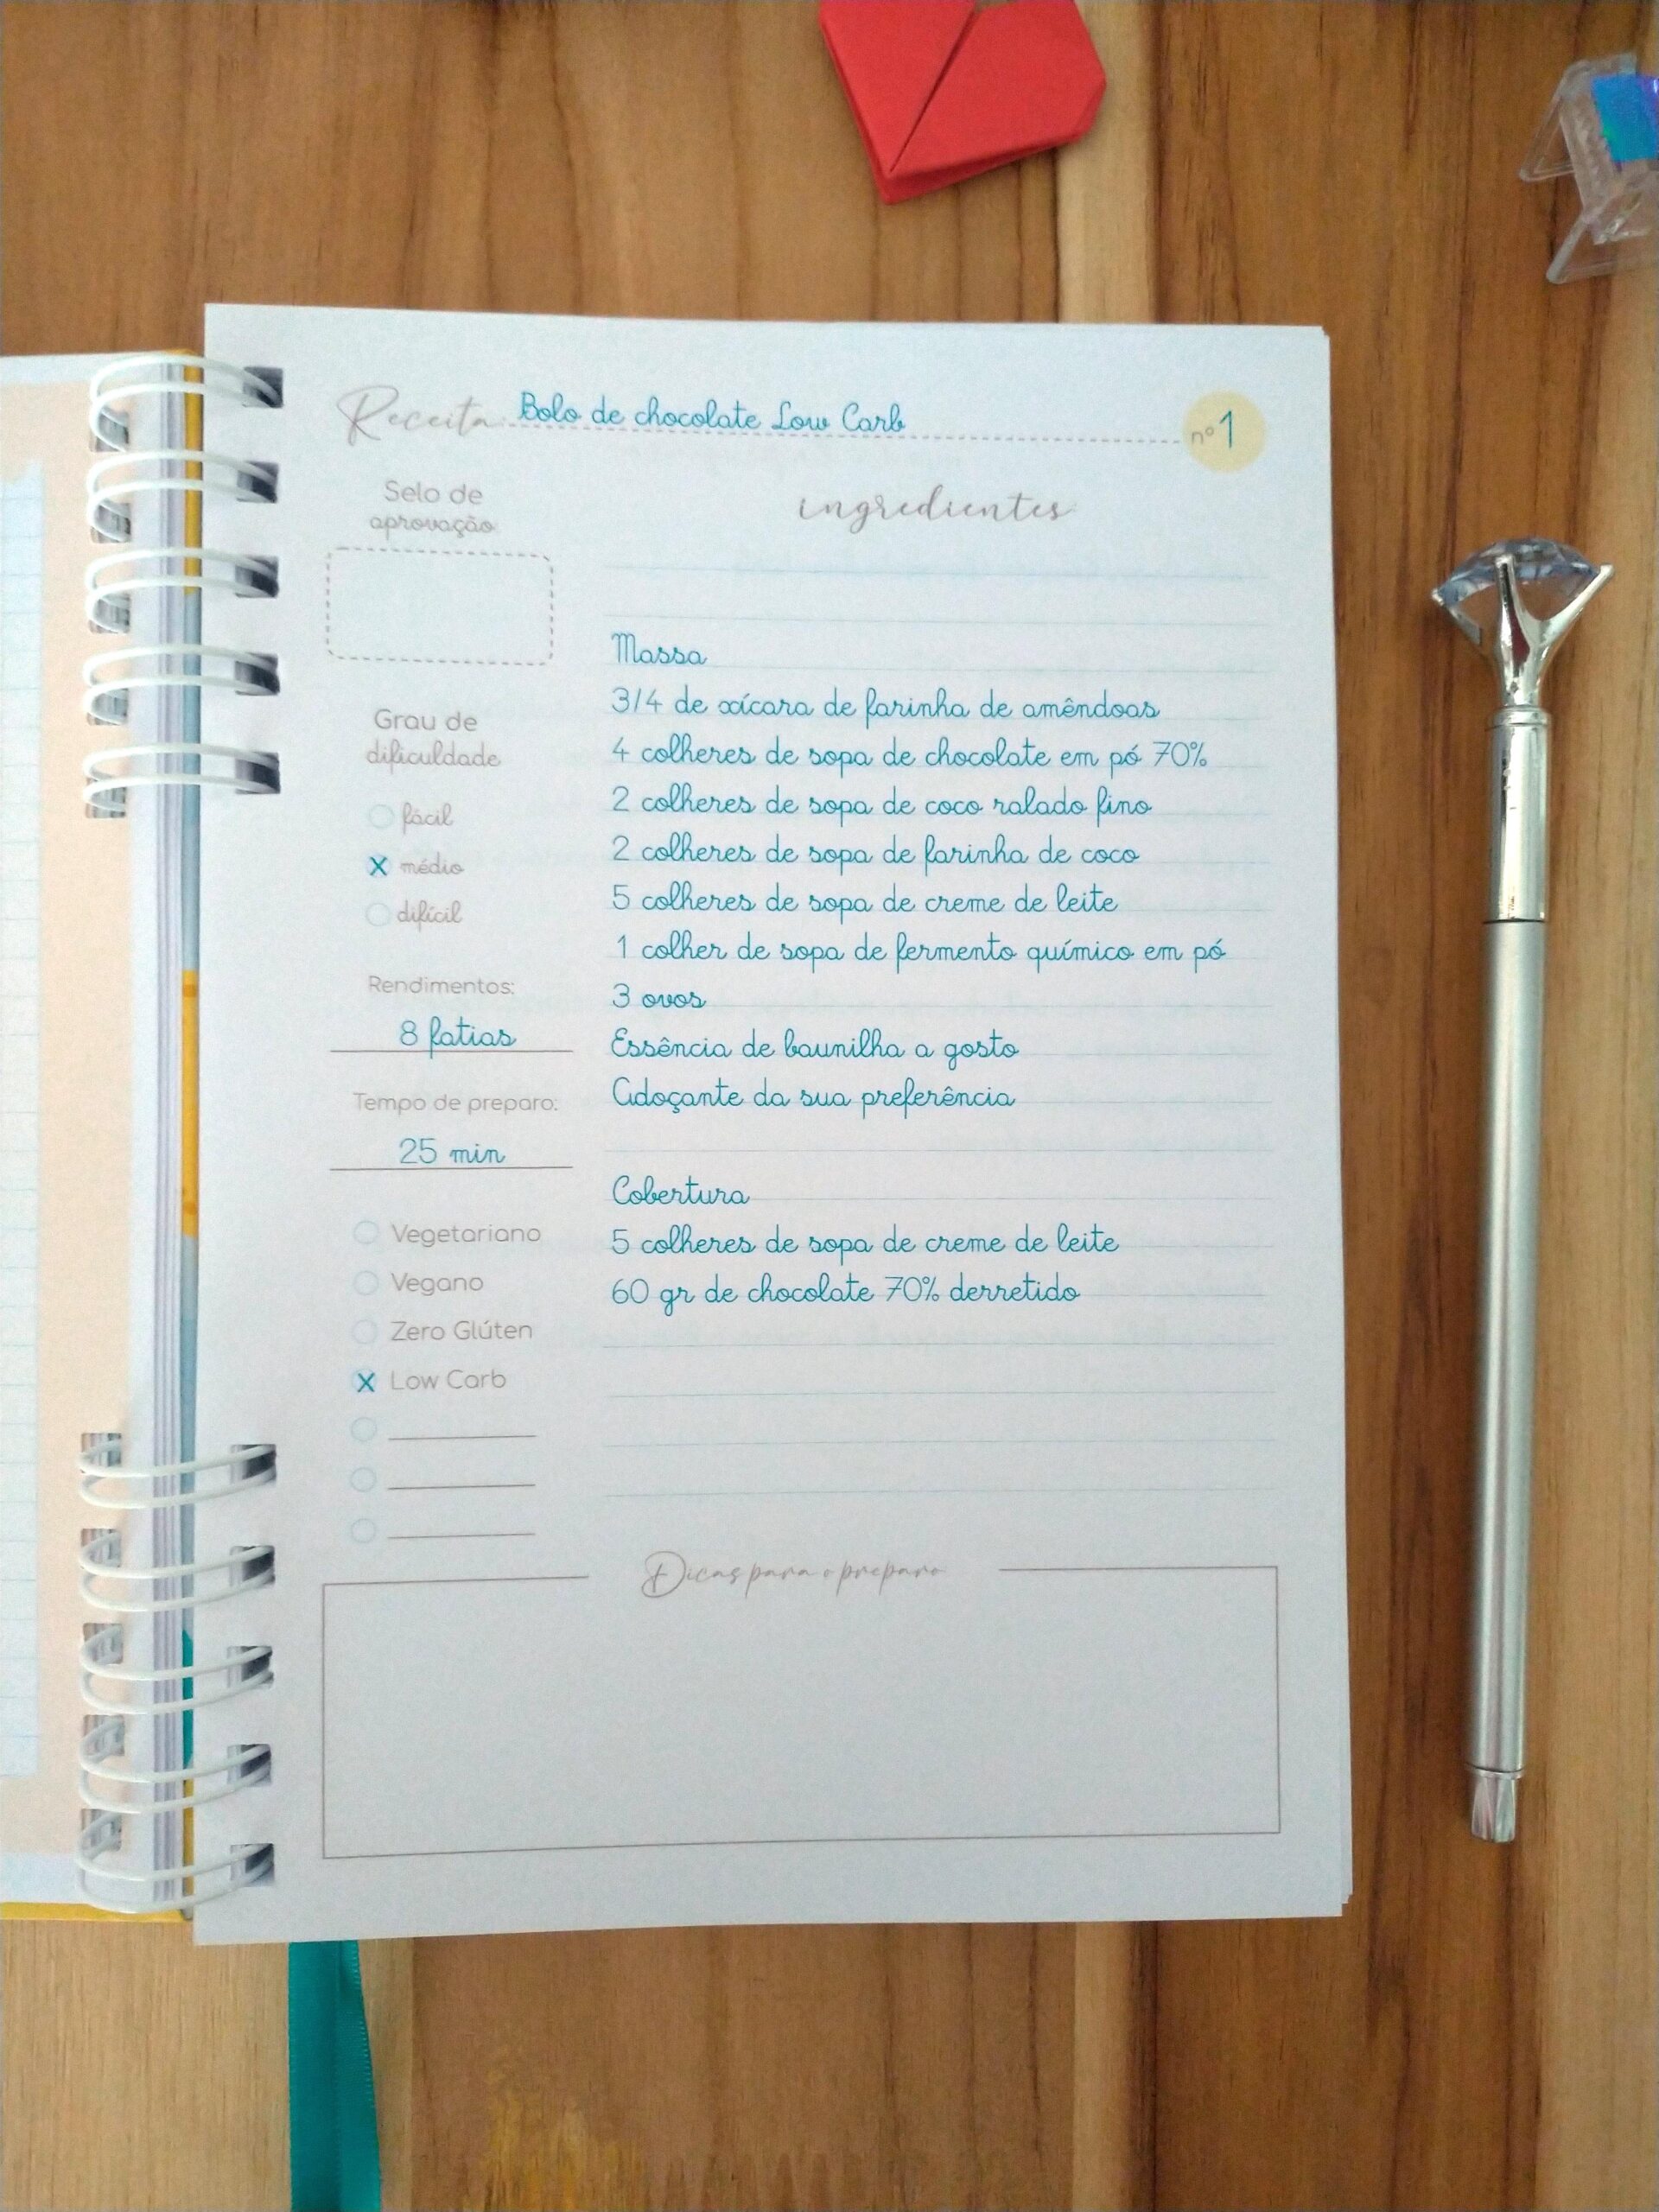 Receita: Bolo de chocolate Low Carb nº 1
Selo de
aprovação
Grau de
dificuldade
fácil
X médio
difícil
Rendimentos:
8 fatias
Tempo de preparo:
25 min
Vegetariano
Vegano
Zero Glúten
X Low Carb
ingredientes:
Massa
3/4 de xícara de farinha de amêndoas
4 colheres de sopa de chocolate em pó 70%
2 colheres de sopa de coco ralado fino
2 colheres de sopa de farinha de coco
5 colheres de sopa de creme de leite
1 colher de sopa de fermento químico em pó
3 ovos
Essência de baunilha a gosto
Adoçante da sua preferência
Cobertura
5 colheres de sopa de creme de leite
60 gr de chocolate 70% derretido
Dicas para o preparo